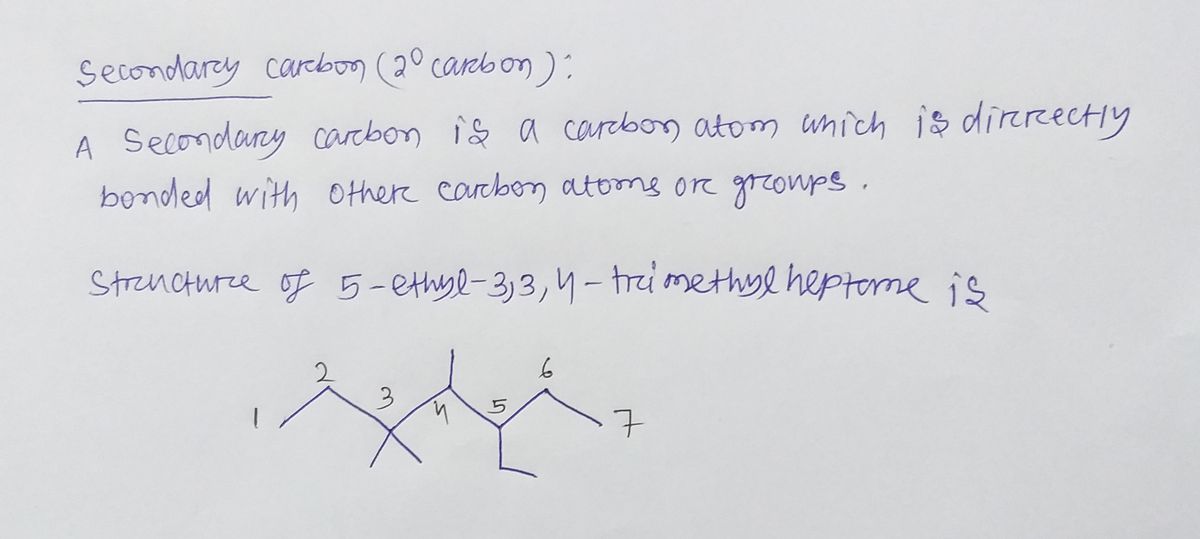 Secondary carbon (2⁰ carbon):
A Secondary carbon is a carbon atom which is dirrectly
bonded with other carbon atoms or groups.
Structure of 5-ethyl-3,3,4-trimethylheptane is
2
6
3
1
4
5
7